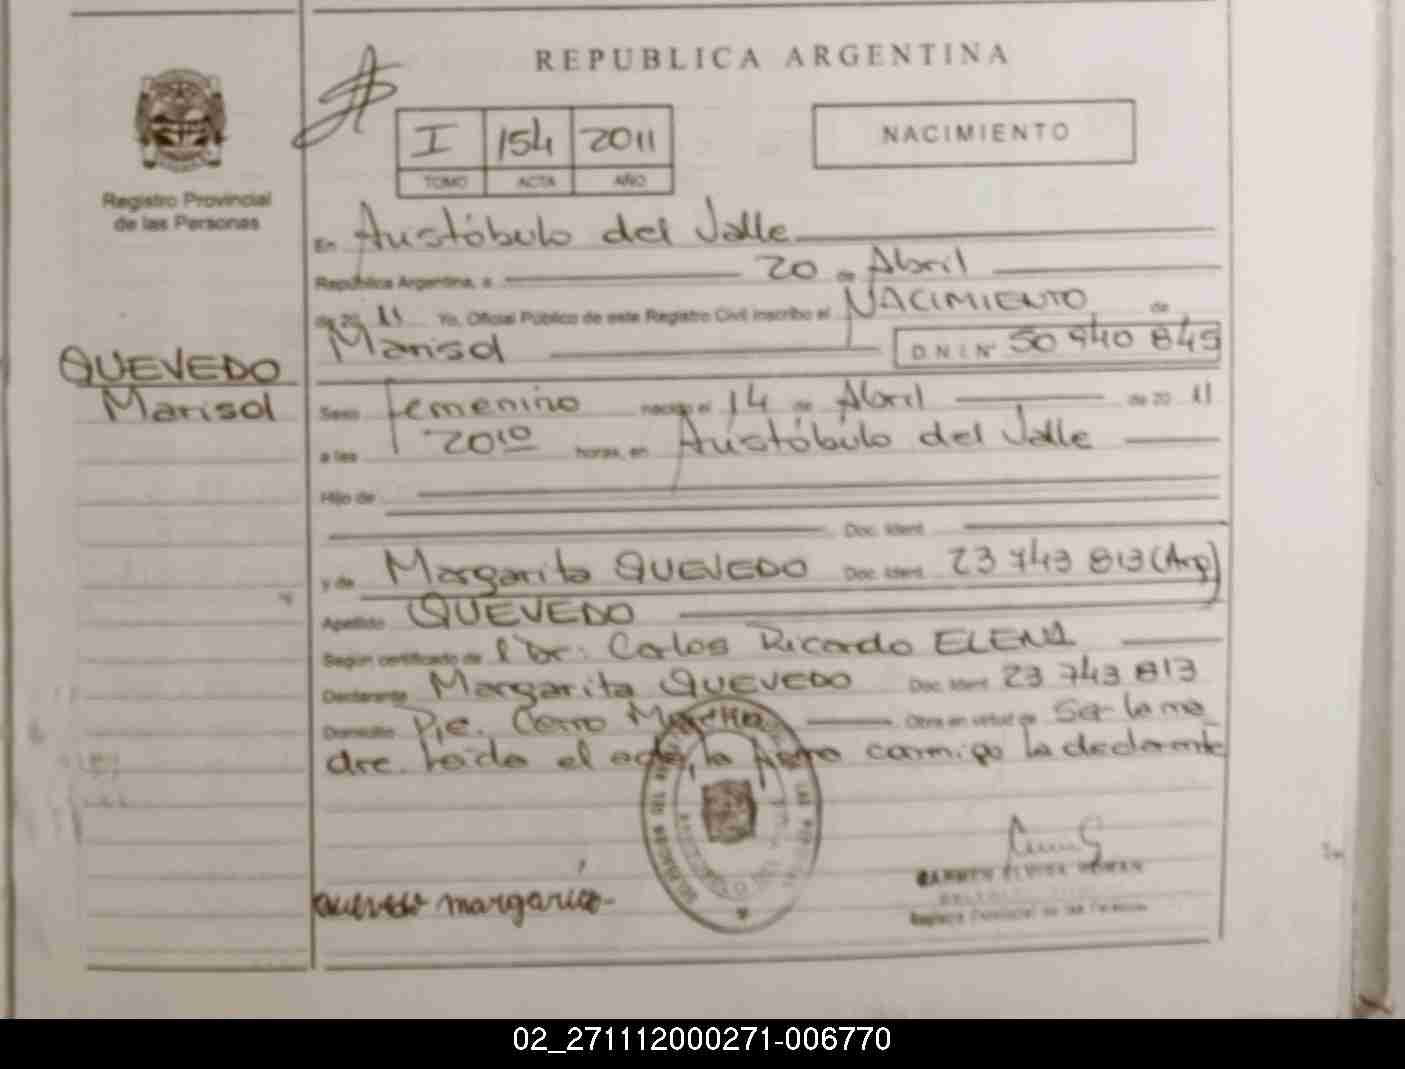 REPUBLICA ARGENTINA
I 154 2011
TOMO ACTA AÑO
NACIMIENTO
Registro Provincial
de las Personas
En Aristóbulo del Valle
República Argentina, a 20 de Abril
de 20 11 Yo, Oficial Público de este Registro Civil inscribo el NACIMIENTO de
Marisol D.N.I. Nº 50 940 845
QUEVEDO
Marisol
Sexo Femenino nacido el 14 de Abril de 20 11
a las 20¹⁰ horas, en Aristóbulo del Valle
Hijo de
Doc. Ident.
y de Margarita QUEVEDO Doc. Ident. 23 743 813 (Arg)
Apellido QUEVEDO
Según certificado de Dr: Carlos Ricardo
Declarante Margarita QUEVEDO Doc. Ident. 23 743 813
Domicilio Pje. Cerro Obra en virtud de Ser la ma
dre. Leída el acta, la conmigo la declarante
quevedo margarita
02_271112000271-006770